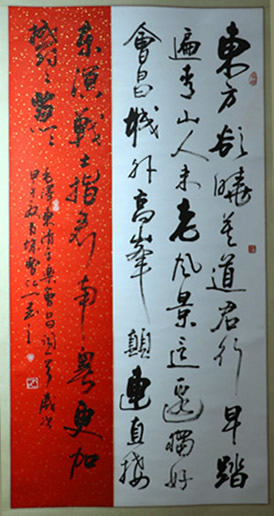 東方欲曉莫道君行早踏
遍青山人未老風景這邊獨好
會昌城外高峯顛連直接
東溟戰士指看南粤更加
鬱々葱々
毛澤東清平樂會昌詞 歲次
甲子